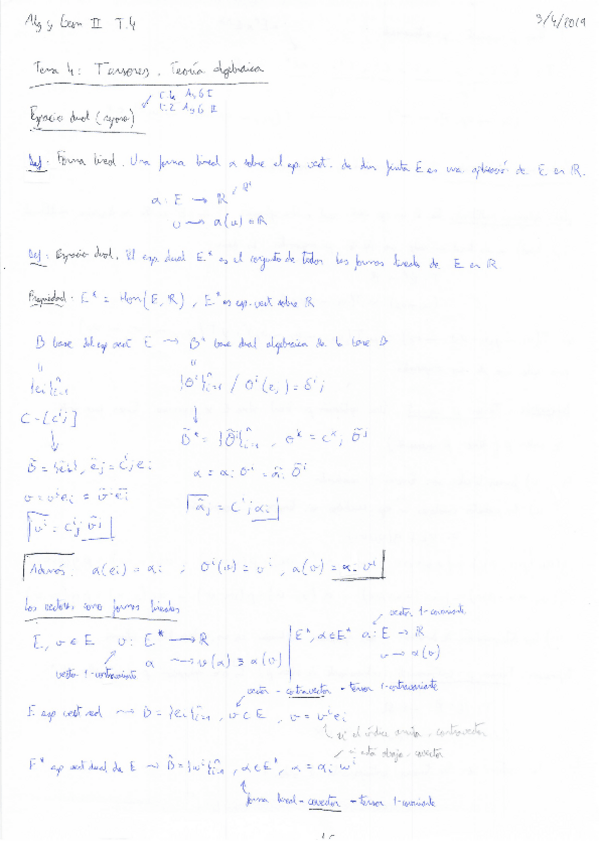 Alg y Geom II T.4
3/4/2019
Tema 4: Tensores. Teoría algebraica
Espacio dual (repaso)
Def: Forma lineal. Una forma lineal α sobre el esp. vect. de dim finita E es una aplicación de E en ℝ.
α: E → ℝ
v → α(v) ∈ ℝ
Def: Espacio dual. El esp. dual E* es el conjunto de todas las formas lineales de E en ℝ
Propiedad: E* = Hom(E, ℝ), E* es esp. vect sobre ℝ
B base del esp vect E → B* base dual algebraica de la base B
{ei}ⁿi=1 {θⁱ}ⁿi=1 / θⁱ(ej) = δⁱj
C = [cⁱj]
B̃* = {θ̃ⁱ}ⁿi=1, θᵏ = cᵏj θ̃ʲ
B̃ = {ẽi}, ẽj = cⁱj ei
α = αi θⁱ = α̃i θ̃ⁱ
v = vⁱ ei = ṽⁱ ẽi
α̃j = cⁱj αi
vⁱ = cⁱj ṽʲ
Además: α(ei) = αi ; θⁱ(v) = vⁱ, α(v) = αi vⁱ
Los vectores como formas lineales
vector 1-covariante
E, v ∈ E v: E* → ℝ
E*, α ∈ E* α: E → ℝ
α → v(α) ≡ α(v)
v → α(v)
vector 1-contravariante
vector - contravector - tensor 1-contravariante
E esp vect real → B = {ei}ⁿi=1, v ∈ E, v = vⁱ ei
el índice arriba, contravector
está abajo, covector
E* esp vect dual de E → B̂ = {wⁱ}ⁿi=1, α ∈ E*, α = αi wⁱ
forma lineal - covector - tensor 1-covariante